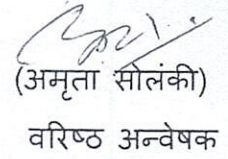 (अमृता सोलंकी)
वरिष्ठ अन्वेषक